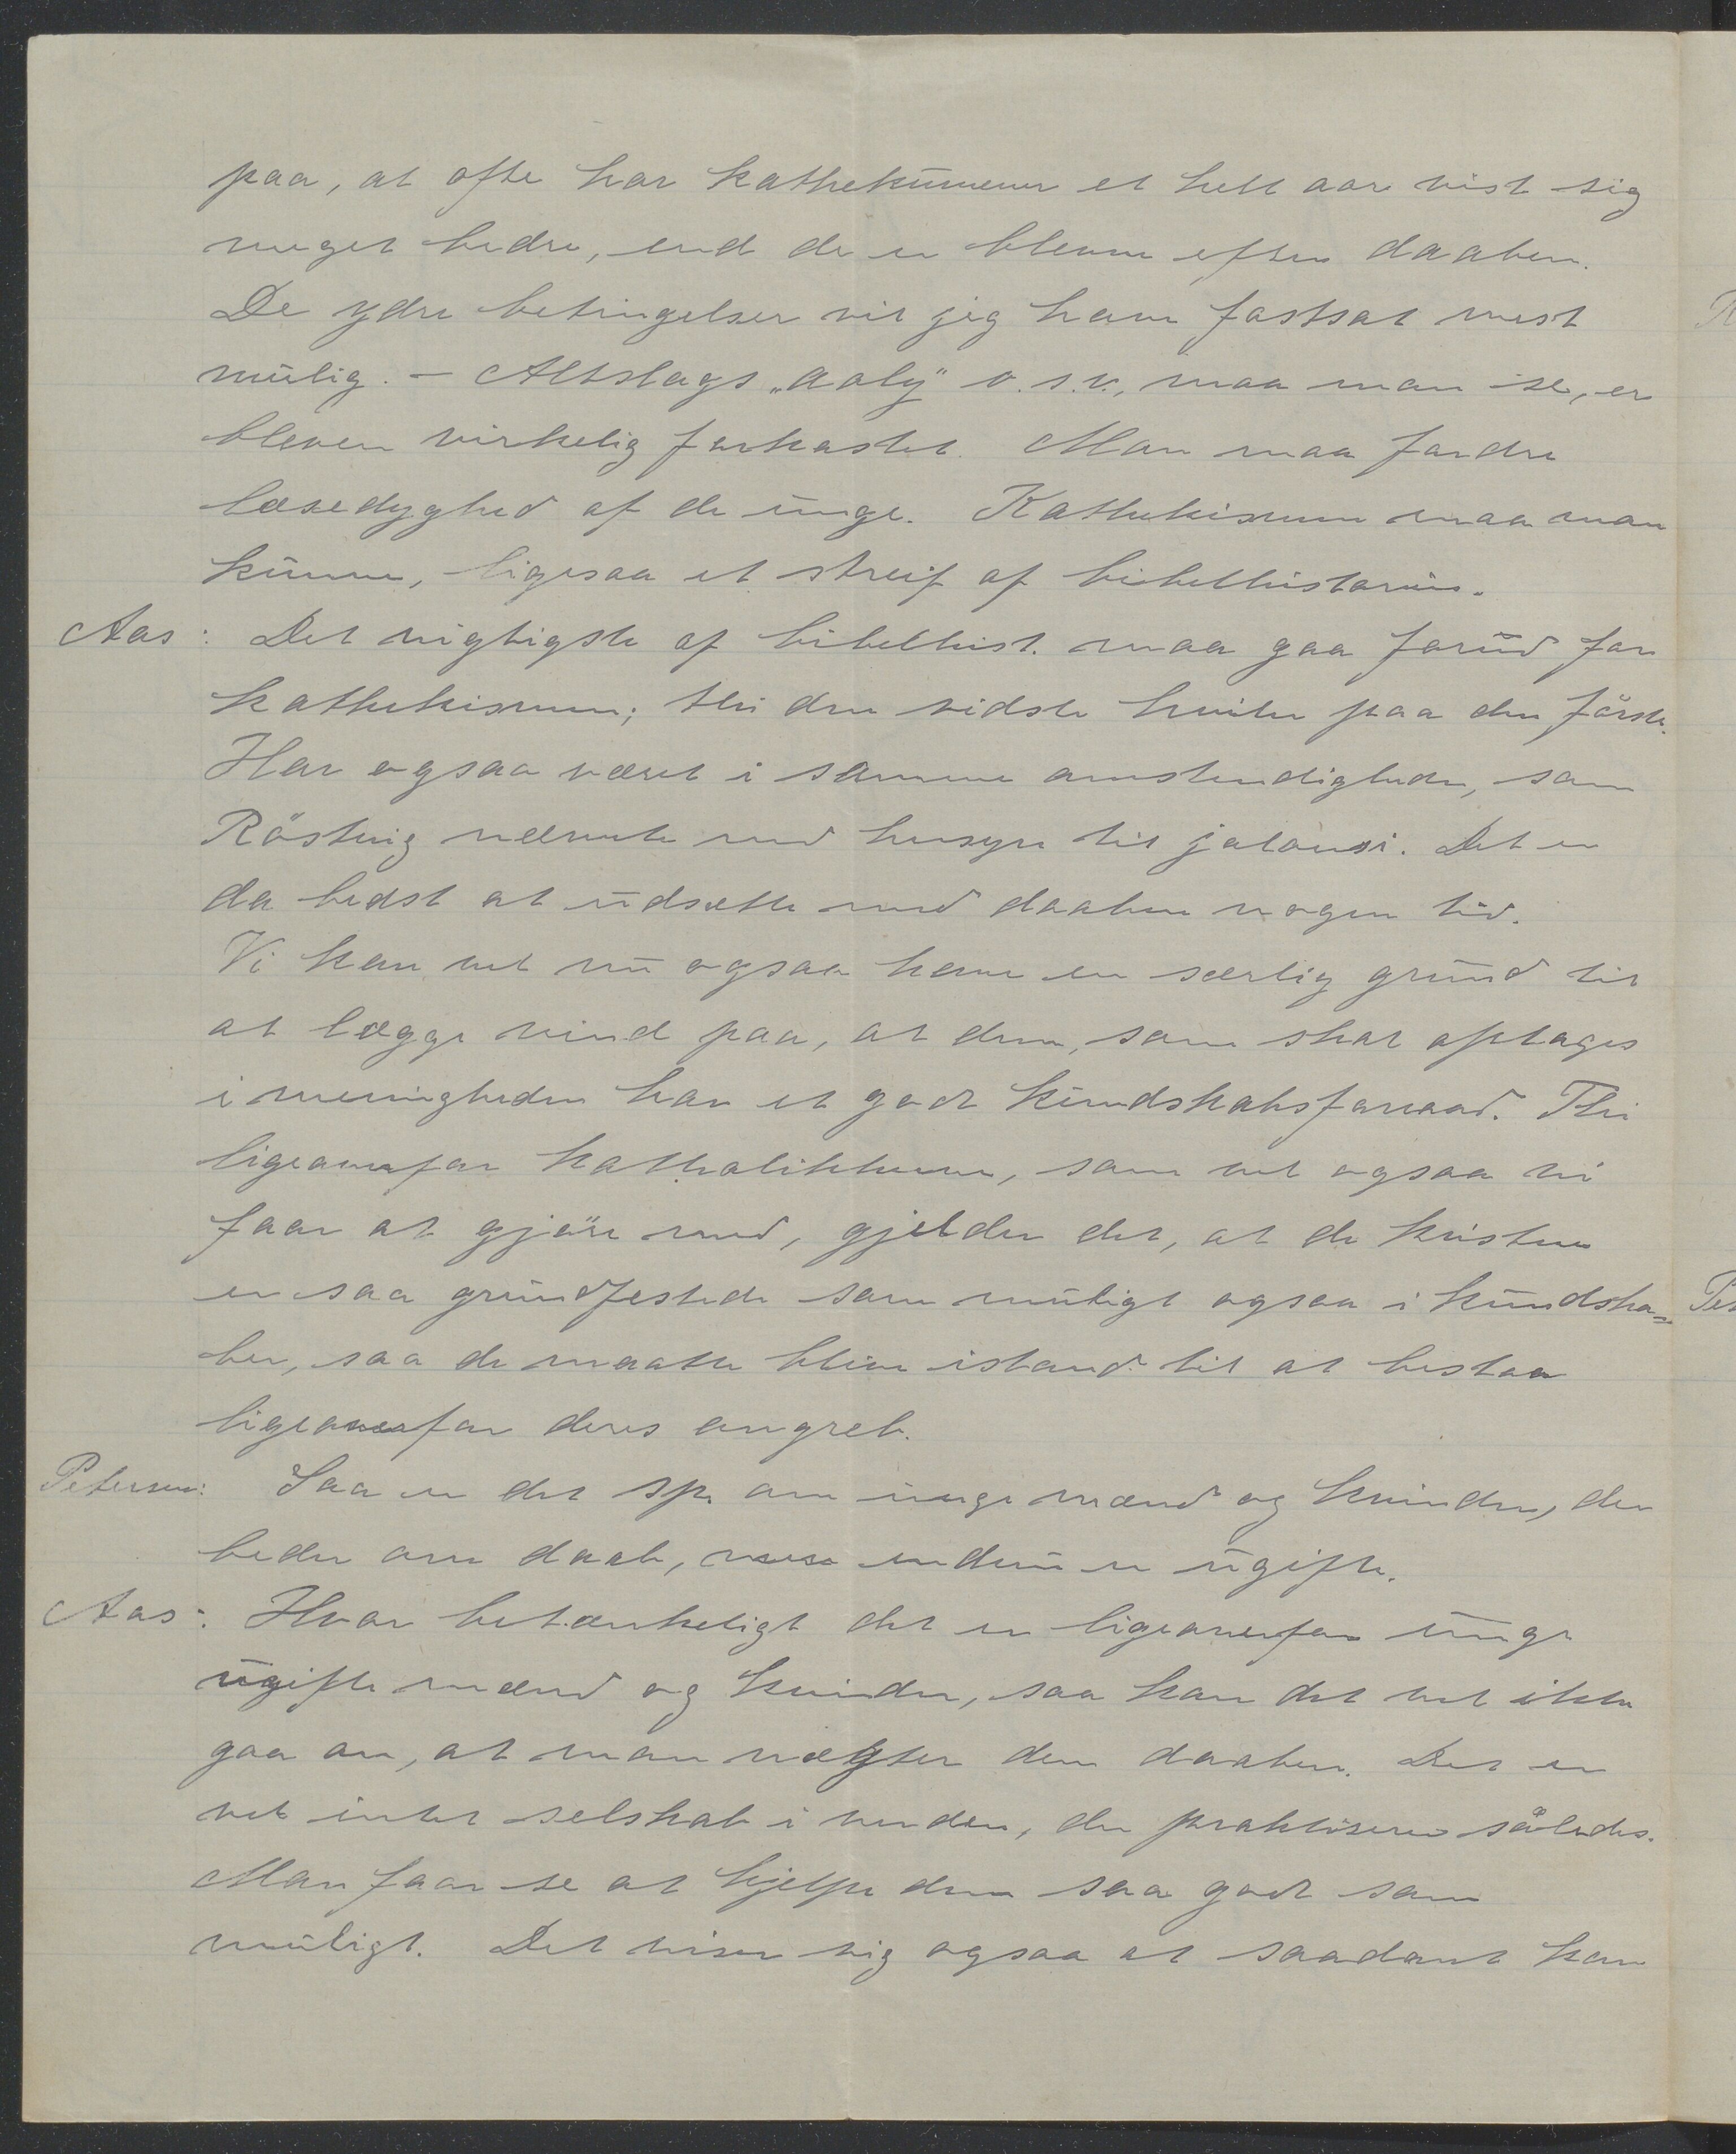 paa, at ofte har kathekumener et helt aar vist sig
meget bedre, end de er blevne efter daaben.
De ydre betingelser vil jeg have fastsat mest
mulig. – Altslags „aoly" o.s.v., maa man se, er
bleven virkelig forkastet. Man maa fordre
læsedyghed af de unge. Kathekismen maa man
kunne, ligesaa et streif af bibelhistorien.
Aas: Det vigtigste af bibelhist. maa gaa forud for
kathekismen; thi den sidste hviler paa den förste.
Har ogsaa været i samme omstendigheder, som
Röstvig nævnte med hensyn til jalousi. Det er
da bedst at udsætte med daaben nogen tid.
Vi kan vel nu ogsaa have en særlig grund til
at lægge vind paa, at dem, som skal optages
i menigheden har et godt kundskabsforraad. Thi
ligeoverfor katholikkerne, som vel ogsaa vi
faar at gjöre med, gjelder det, at de kristne
er saa grundfestede som muligt ogsaa i kundska=
ber, saa de maatte blive istand til at bestaa
ligeoverfor deres angreb.
Petersen: Saa er det sp. om unge mænd og kvinder, der
beder om daab, endnu er ugifte.
Aas: Hvor betænkeligt det er ligeoverfor unge
ugifte mænd og kvinder, saa kan det vel ikke
gaa an, at man nægter dem daaben. Det er
vel intet selskab i verden, der praktiserer således.
Man faar se at hjelpe dem saa godt som
muligt. Det viser sig ogsaa at saadant kan